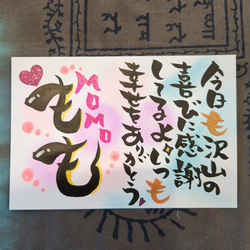 今日も沢山の
喜びに感謝
してるよ いつも
幸せをありがとう
MOMO
もも